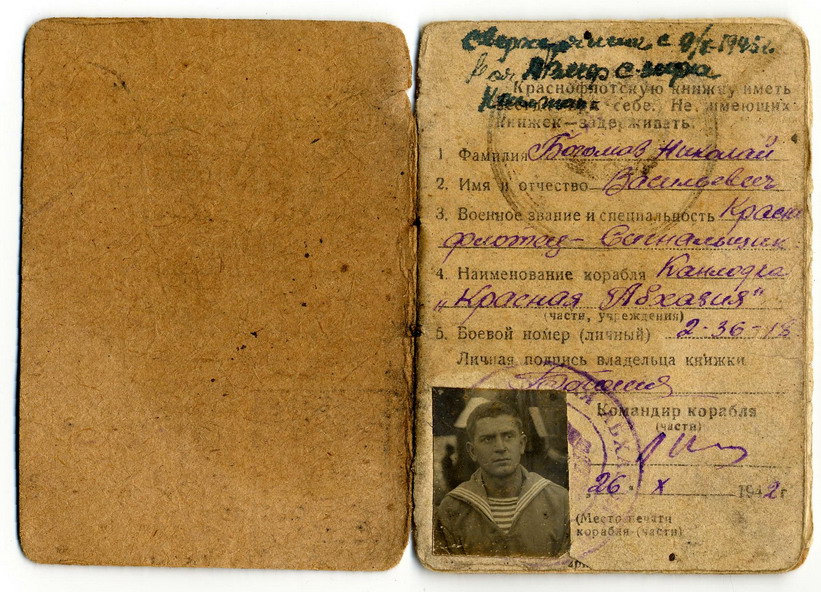 Сверхсрочник с
Краснофлотскую книжку иметь
себе. Не имеющих
книжек—задерживать.
1. Фамилия Богомаз Николай
2. Имя и отчество Васильевич
3. Военное звание и специальность Красно
флотец - Сигнальщик
4. Наименование корабля Канлодка
„Красная Абхазия"
(части, учреждения)
5. Боевой номер (личный) 2-36-15
Личная подпись владельца книжки
Командир корабля
(части)
26 X 1942 г
(Место печати
корабля (части)